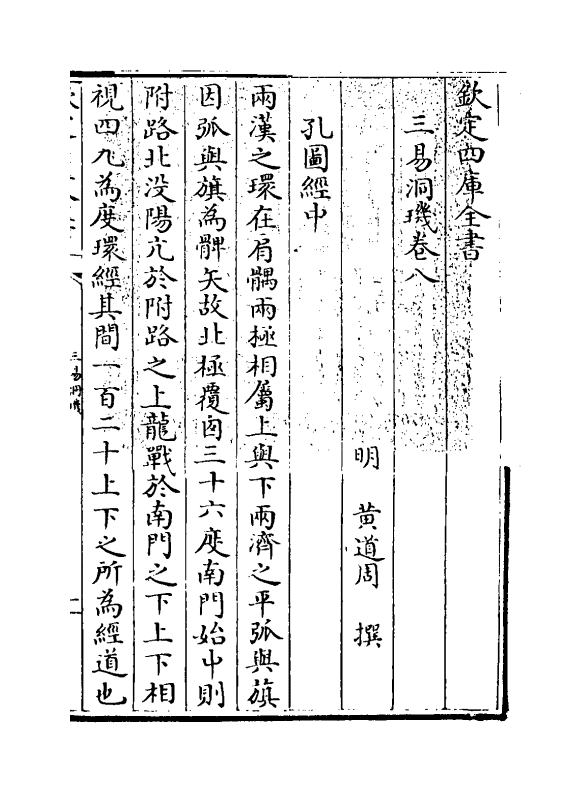 欽定四庫全書
三易洞璣卷八
明　黃道周　撰
孔圖經中
兩漢之環在肩髃兩極相屬上與下兩濟之平弧與旗
因弧與旗為髀矢故北極覆囪三十六度南門始中則
附路北没陽亢於附路之上龍戰於南門之下上下相
視四九為度環經其間一百二十上下之所為經道也
三易洞璣